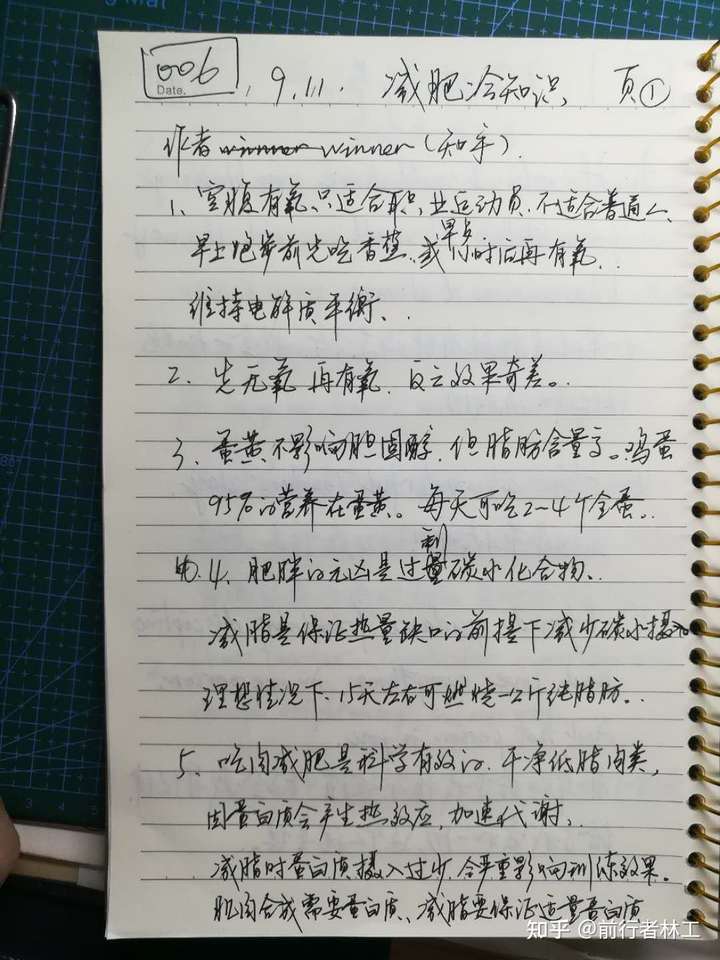 Mat
006 9.11. 减肥冷知识 页①
Date.
作者 winner winner (知乎).
1、空腹有氧只适合职业运动员.不适合普通人、
早上跑步前先吃香蕉、或早点小时后再有氧、
维持电解质平衡、
2、先无氧再有氧.反之效果奇差。
3、蛋黄不影响胆固醇,但脂肪含量高。鸡蛋
95%的营养在蛋黄。每天可吃2~4个全蛋。
4、肥胖的元凶是过剩碳水化合物、
减脂是保证热量缺口的前提下减少碳水摄入
理想情况下、15天左右可燃烧一公斤纯脂肪。
5、吃肉减肥是科学有效的.干净低脂肉类,
因蛋白质会产生热效应,加速代谢、
减脂时蛋白质摄入过少,会严重影响训练效果。
肌肉合成需要蛋白质、减脂要保证适量蛋白质
知乎 @前行者林工